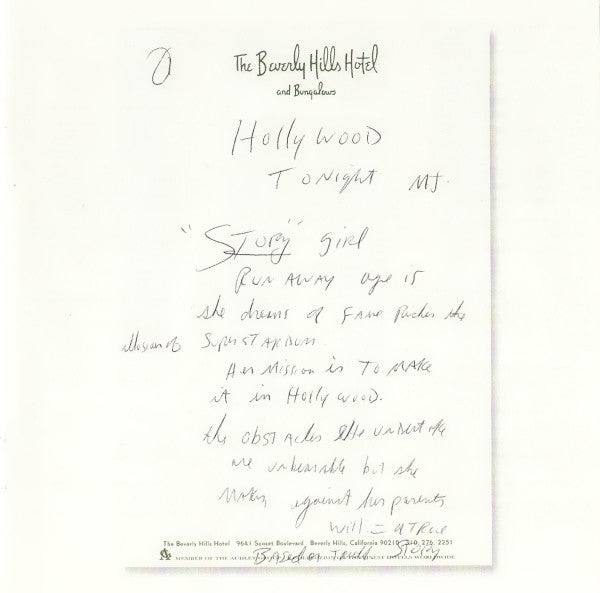 The Beverly Hills Hotel
and Bungalows
Hollywood
Tonight MJ.
"Story" girl
RUN AWAY age 15
she dreams of FAME the
allusion of Superstardom.
Her Mission is To MAKE
it in Hollywood.
the obstacles she undertake
are unbearable but she
Makes against her parents
will = a True
Story
Based on Truth
The Beverly Hills Hotel 9641 Sunset Boulevard Beverly Hills, California 90210 310. 276. 2251
A MEMBER OF THE HOTELS WORLDWIDE